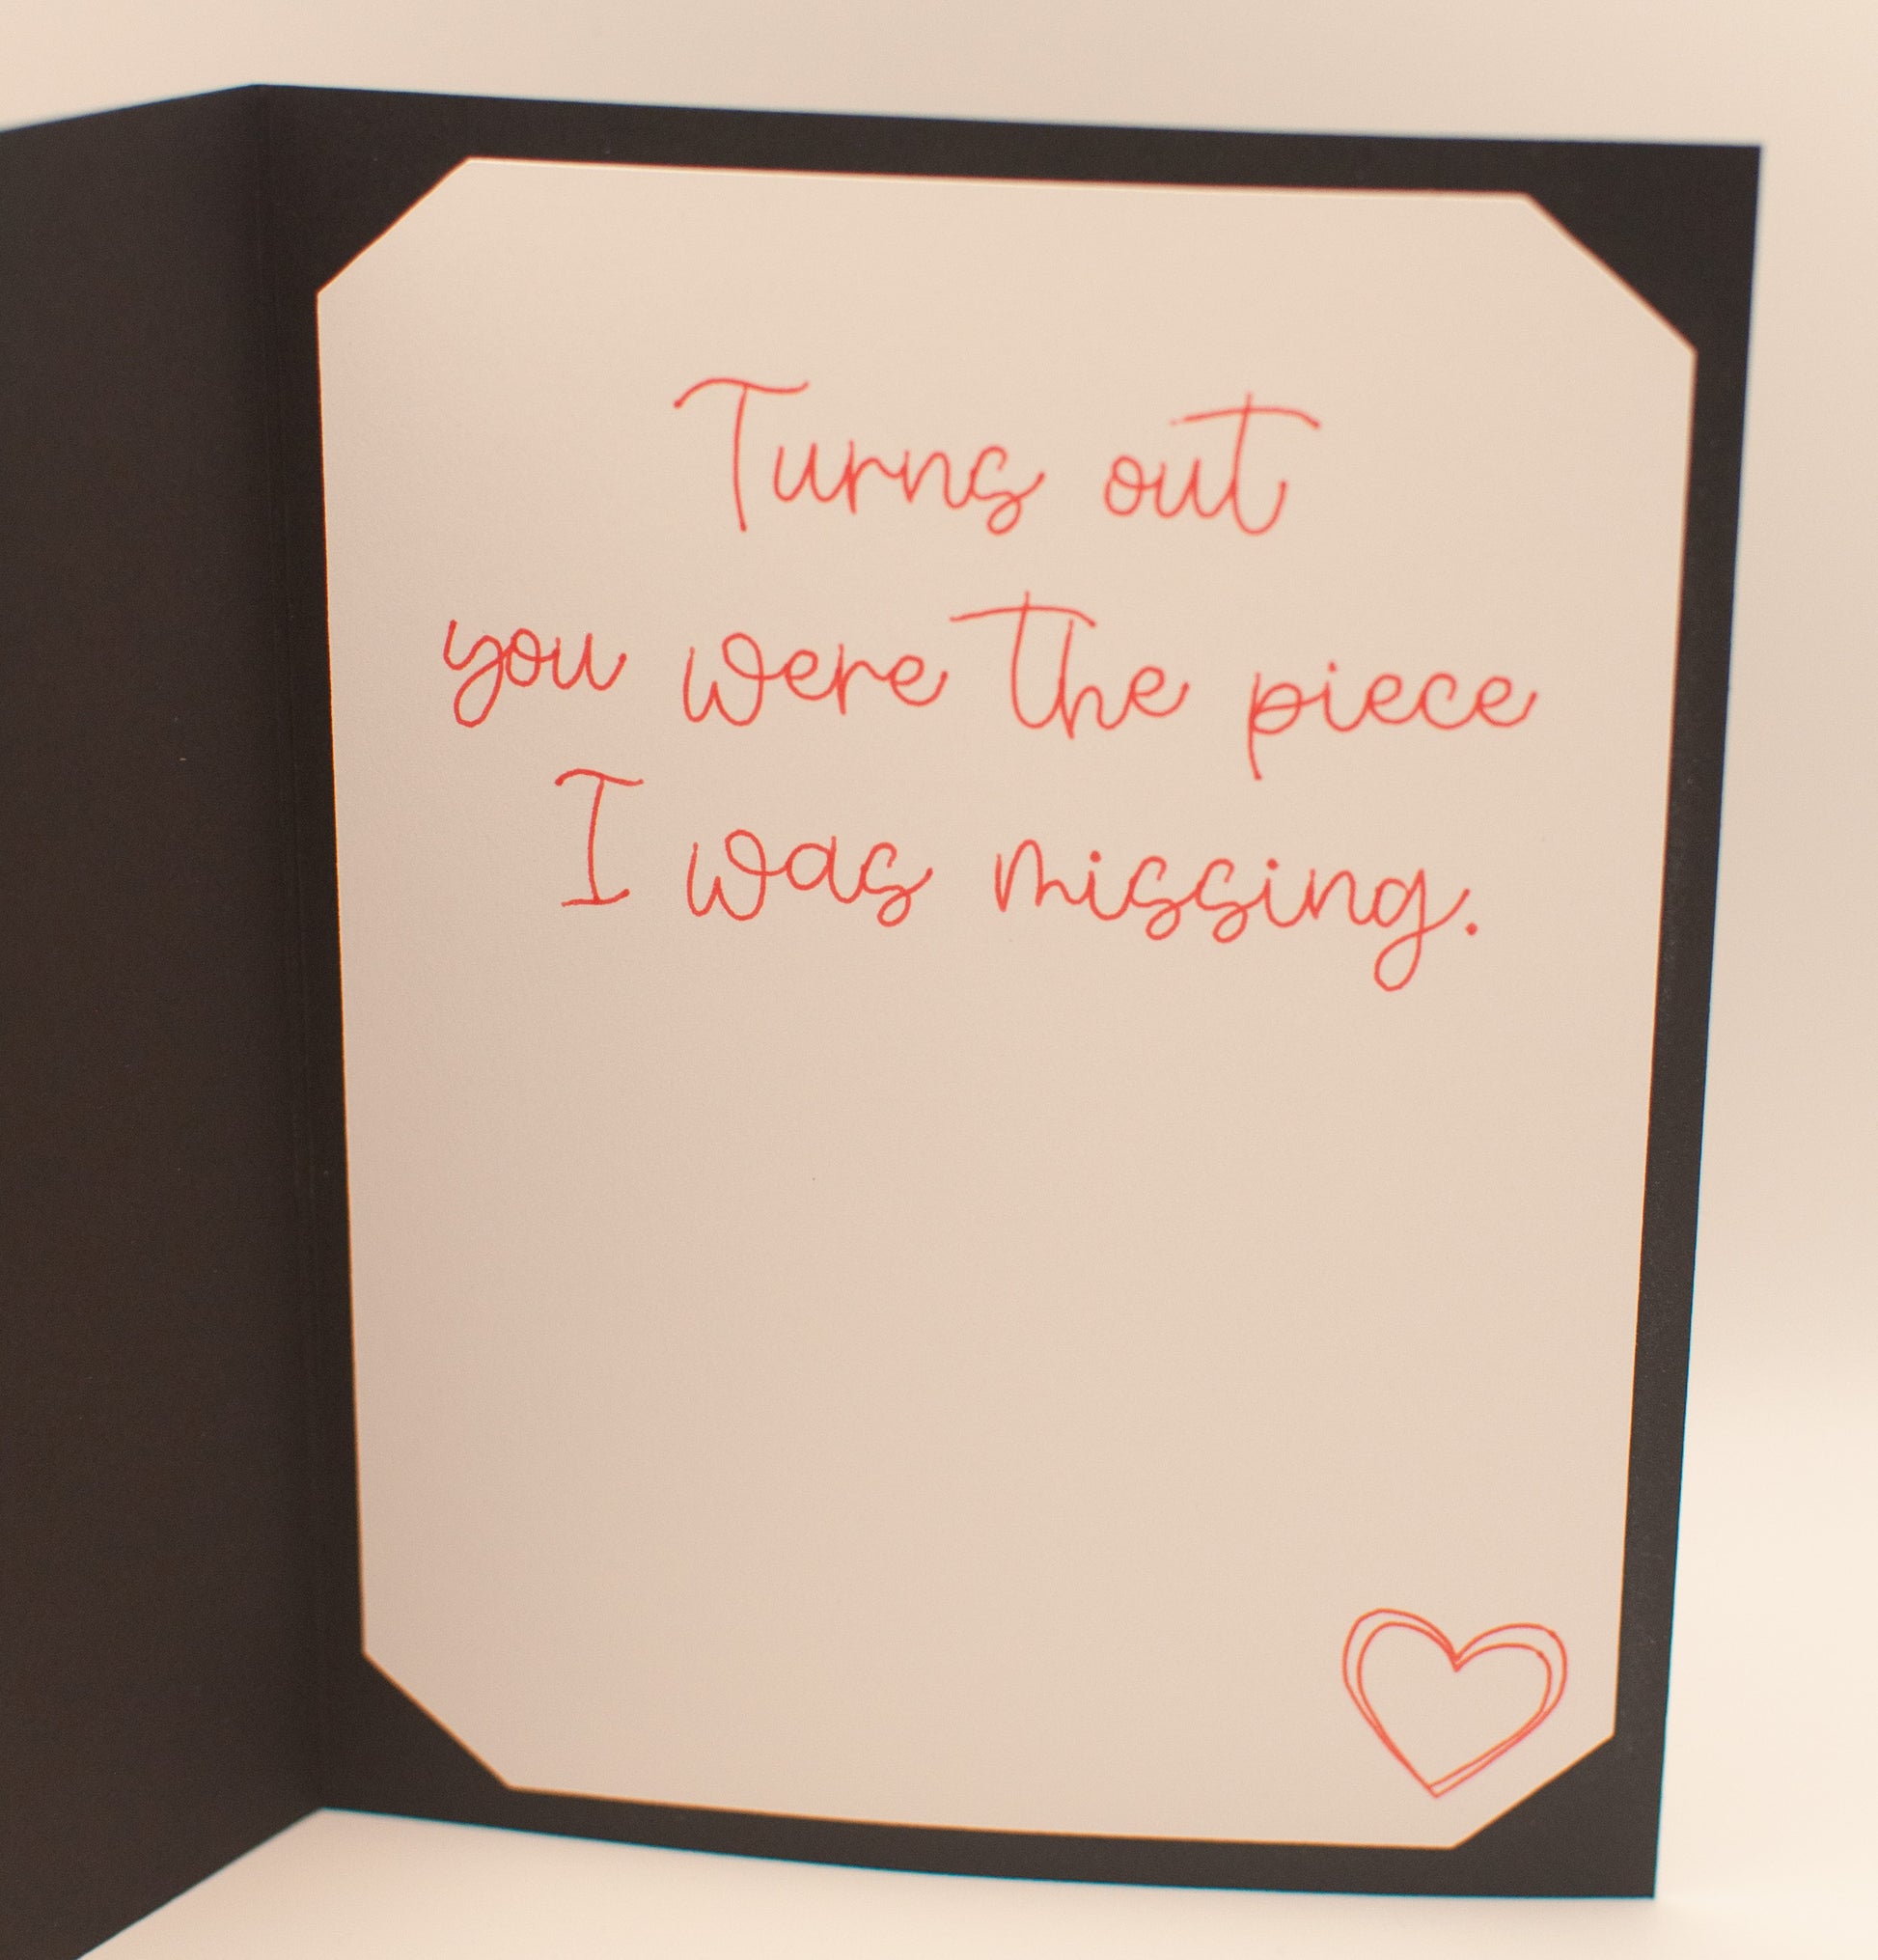 Turns out
you were the piece
I was missing.